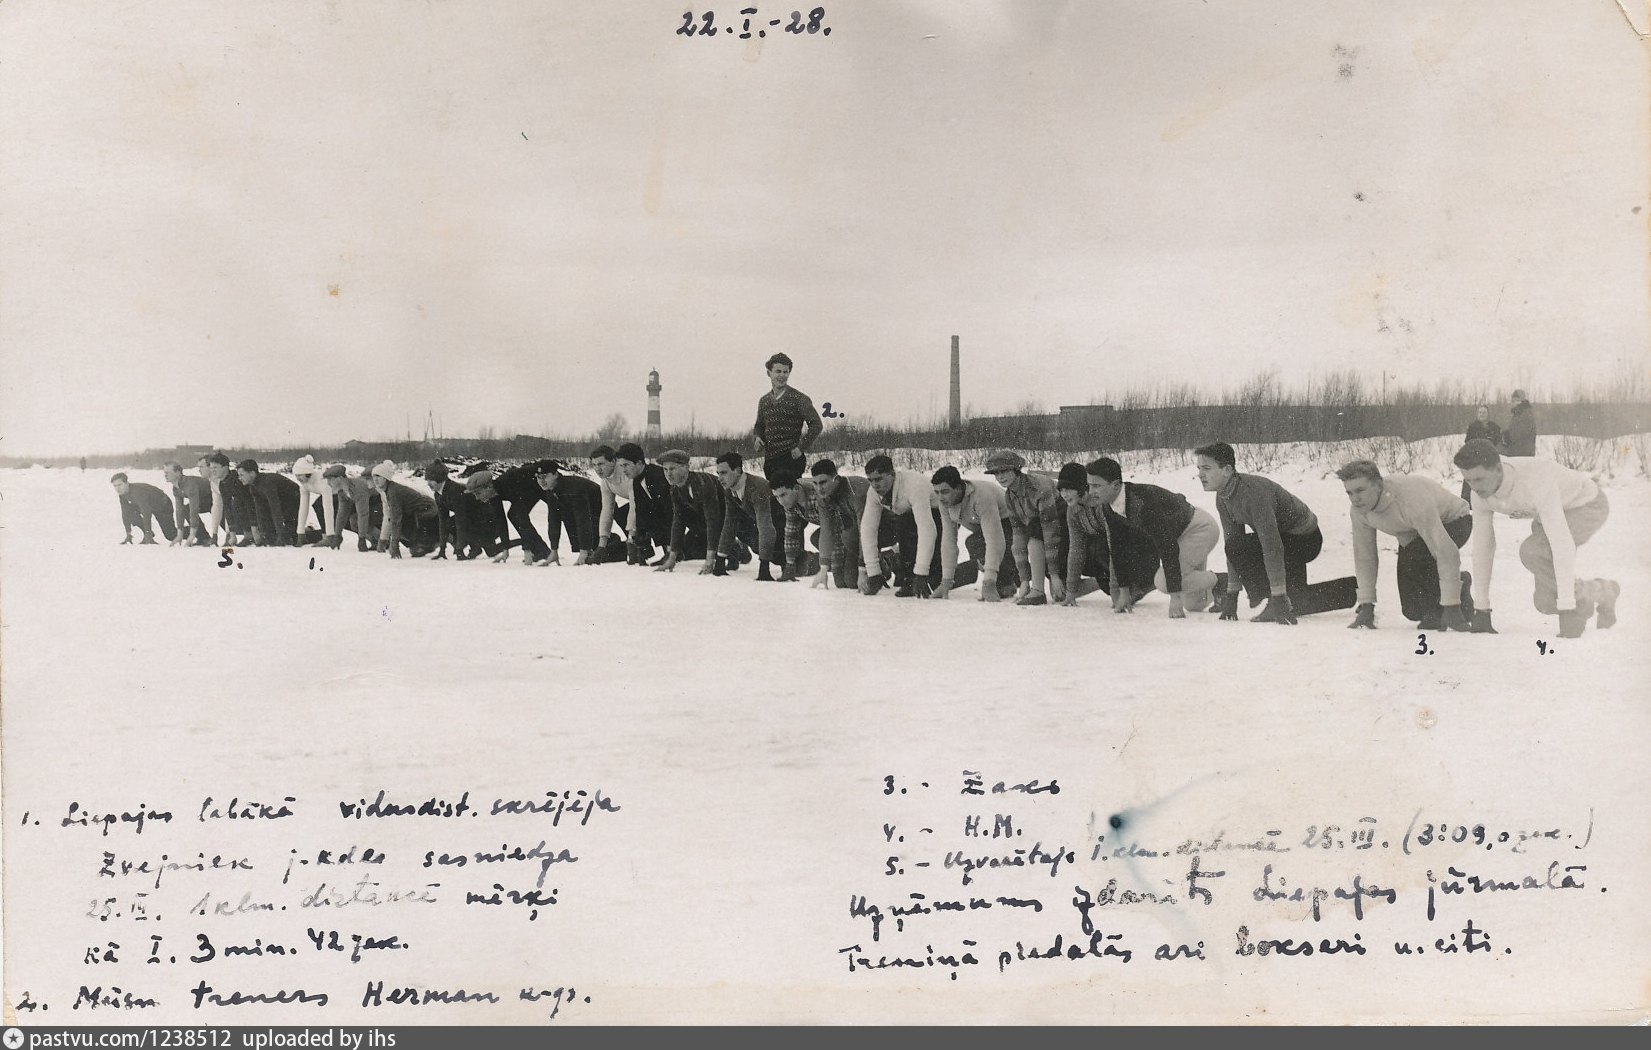 22.I.-28.
2.
5.
1.
3.
4.
1. Liepajas labākā vidusdist. skrējēja
Zvejniek j-kdze sasniedza
25.III. 1 klm. distancē mērķi
kā I. 3 min. 42 zek.
2. Mūsu treners Herman k-gs.
3. - Žaks
4. - H.M.
5. - Uzvarētajs 1. klm. distancē 25.III. (3:09,0 zek.)
Uzņēmums izdarīts Liepajas jūrmalā.
Treniņā piedalās ari bokseri u. citi.
pastvu.com/1238512 uploaded by ihs